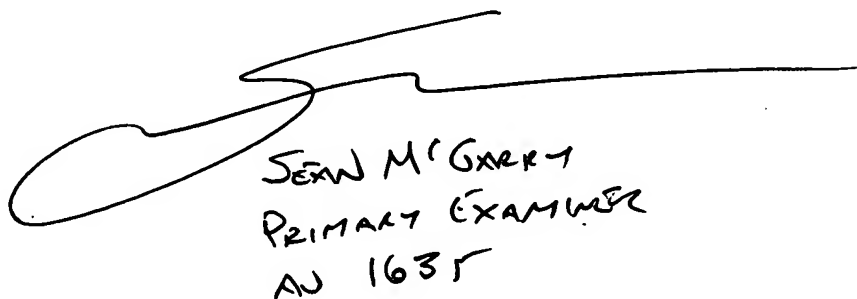 SEAN M'GARRY
PRIMARY EXAMINER
AU 1635